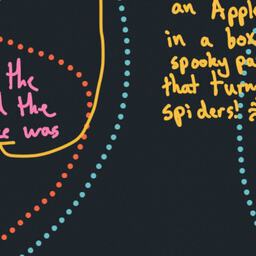 the
the
was
an Appl
in a box
spooky pa
that turn
spiders!